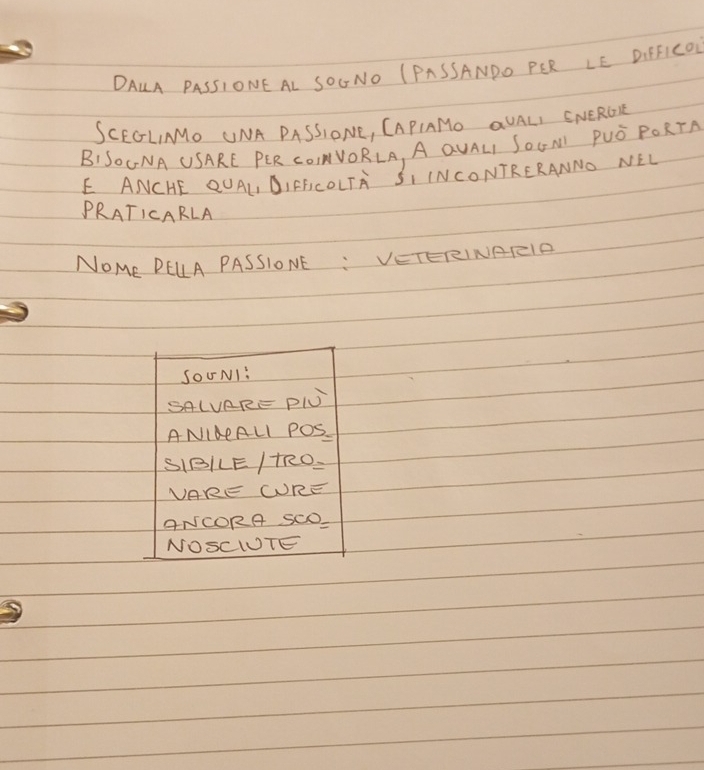 DALLA PASSIONE AL SOGNO (PASSANDO PER LE DIFFICOL
SCEGLIAMO UNA PASSIONE, CAPIAMO QUALI ENERGIE
BISOGNA USARE PER COINVORLA, A QUALI SOGNI PUÒ PORTA
E ANCHE QUALI DIFFICOLTÀ SI INCONTRERANNO NEL
PRATICARLA
NOME DELLA PASSIONE : VETERINARIA
SOGNI:
SALVARE PIÙ
ANIMALI POS_
SIBILE/TRO_
VARE CURE
ANCORA SCO_
NOSCIUTE